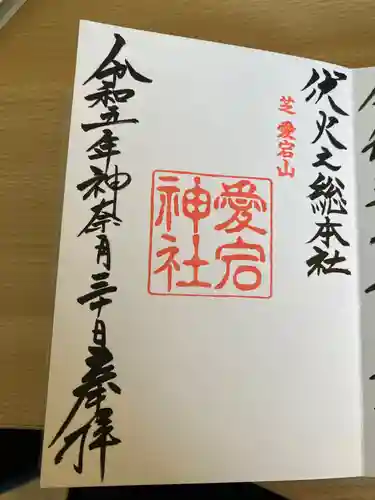 伏火之総本社
芝 愛宕山
愛宕
神社
令和五年神奈月三十日奉拝